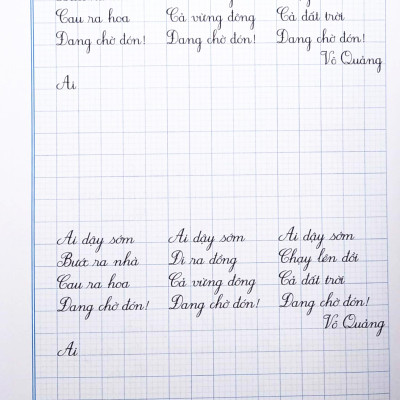 Cau ra hoa Cả vừng đông Cả đất trời
Đang chờ đón! Đang chờ đón! Đang chờ đón!
Võ Quảng
Ai
Ai dậy sớm Ai dậy sớm Ai dậy sớm
Bước ra nhà Đi ra đồng Chạy lên đồi
Cau ra hoa Cả vừng đông Cả đất trời
Đang chờ đón! Đang chờ đón! Đang chờ đón!
Võ Quảng
Ai